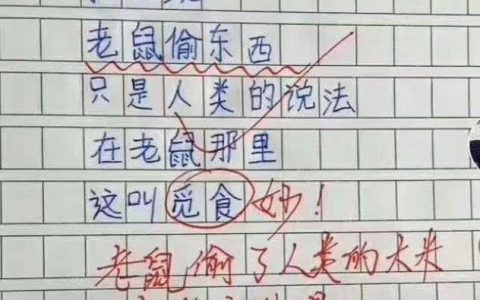 老鼠偷东西
只是人类的说法
在老鼠那里
这叫觅食 妙！
老鼠偷了人类的大米